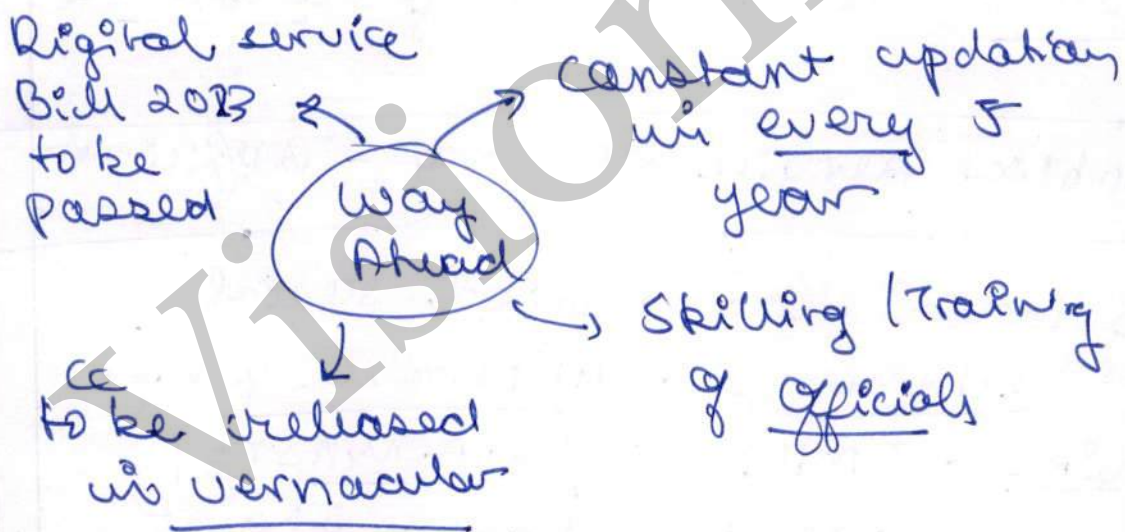 Digital service
Bill 2013
to be
passed
Way
Ahead
constant updation
in every 5
year
Skilling / Training
of Officials
CC
to be released
in vernacular
Vision